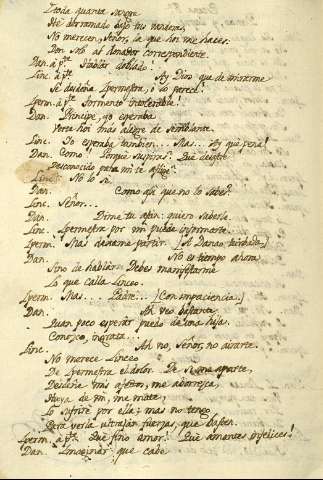 Toda quanta sangre
He derramado bajo tus vanderas
No merecen, Señor, la que hoi me haces.
Don sob al donador correspondiente.
Dan. á pte. Hablar doblado!
Linc. á pte. Ay Dios que de mirarme
Se desdeña Ipermestra, ó lo parece!
Iperm. á pte. Tormento intolerable!
Dan. Principe, yo esperaba
Verte hoi más alegre de semblante.
Linc. Yo esperaba tambien... Mas... Ay qué pena!
Dan. Como? Porqué suspiras? Qué desastre
Desconocido para mi te aflige?
Linc. No lo sé.
Dan. Como asi que no lo sabes?
Linc. Señor...
Dan. Dime tu afan: quiero saberlo.
Linc. Ipermestra por mi puede informarte.
Iperm. Mas dexame partir. (A Danao turbada.)
Dan. No es tiempo ahora
Sino de hablar: Debes manifestarme
Lo que calla Linceo.
Iperm. Mas... Padre... (Con impaciencia.)
Dan. Ah veo bastante
Quan poco esperar puedo de una hija.
Conozco, ingrata...
Linc. Ah no, Señor, no airarte.
No merece Linceo
De Ipermestra el dolor. De si me aparte,
Desdeñe mis afectos, me aborrezca,
Huya de mi, me mate,
Lo sufriré por ella; mas no tengo
Para verla ultrajar fuerzas, que basten.
Iperm. á pte. Qué fino amor! Qué amantes infelices!
Dan. Imaginar que cabe